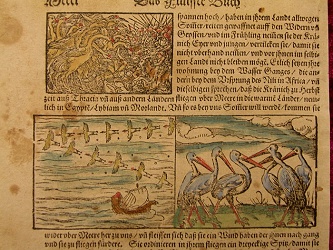 Das Fünffte Buch
spannen hoch/ haben in ihrem Land allwegen
Spiesser/ reiten gewaffnet auff den Widern vñ
Geyssen/ und im Früling neñen sie der Krä-
nich Eyer und jungen/ verwüsten sie/ damit sie
nicht überhand neñen/ und vor ihnen in selbi-
gen Land nicht bleiben mögē. Etlich setzen ihre
wohnung bey dem Wasser Ganges/ die an-
dern bey dem Ursprung des Nili in Africa/ vñ
dieselbigen sprechen/ daß die Kränich zu Herbst
zeit auß Thracia vñ auß andern Ländern fliegen über Meere in die warmē Länder/ nem-
lich in Egypt/ Lybiam vñ Morlande.
wider über Meere her zu uns/ vñ fleissen sich daß sie ein Wind haben der ihnen nach gang
und sie zu fliegen fürdere. Sie ordinieren in ihrem fliegen ein dreyeckete Spitz/ damit sie